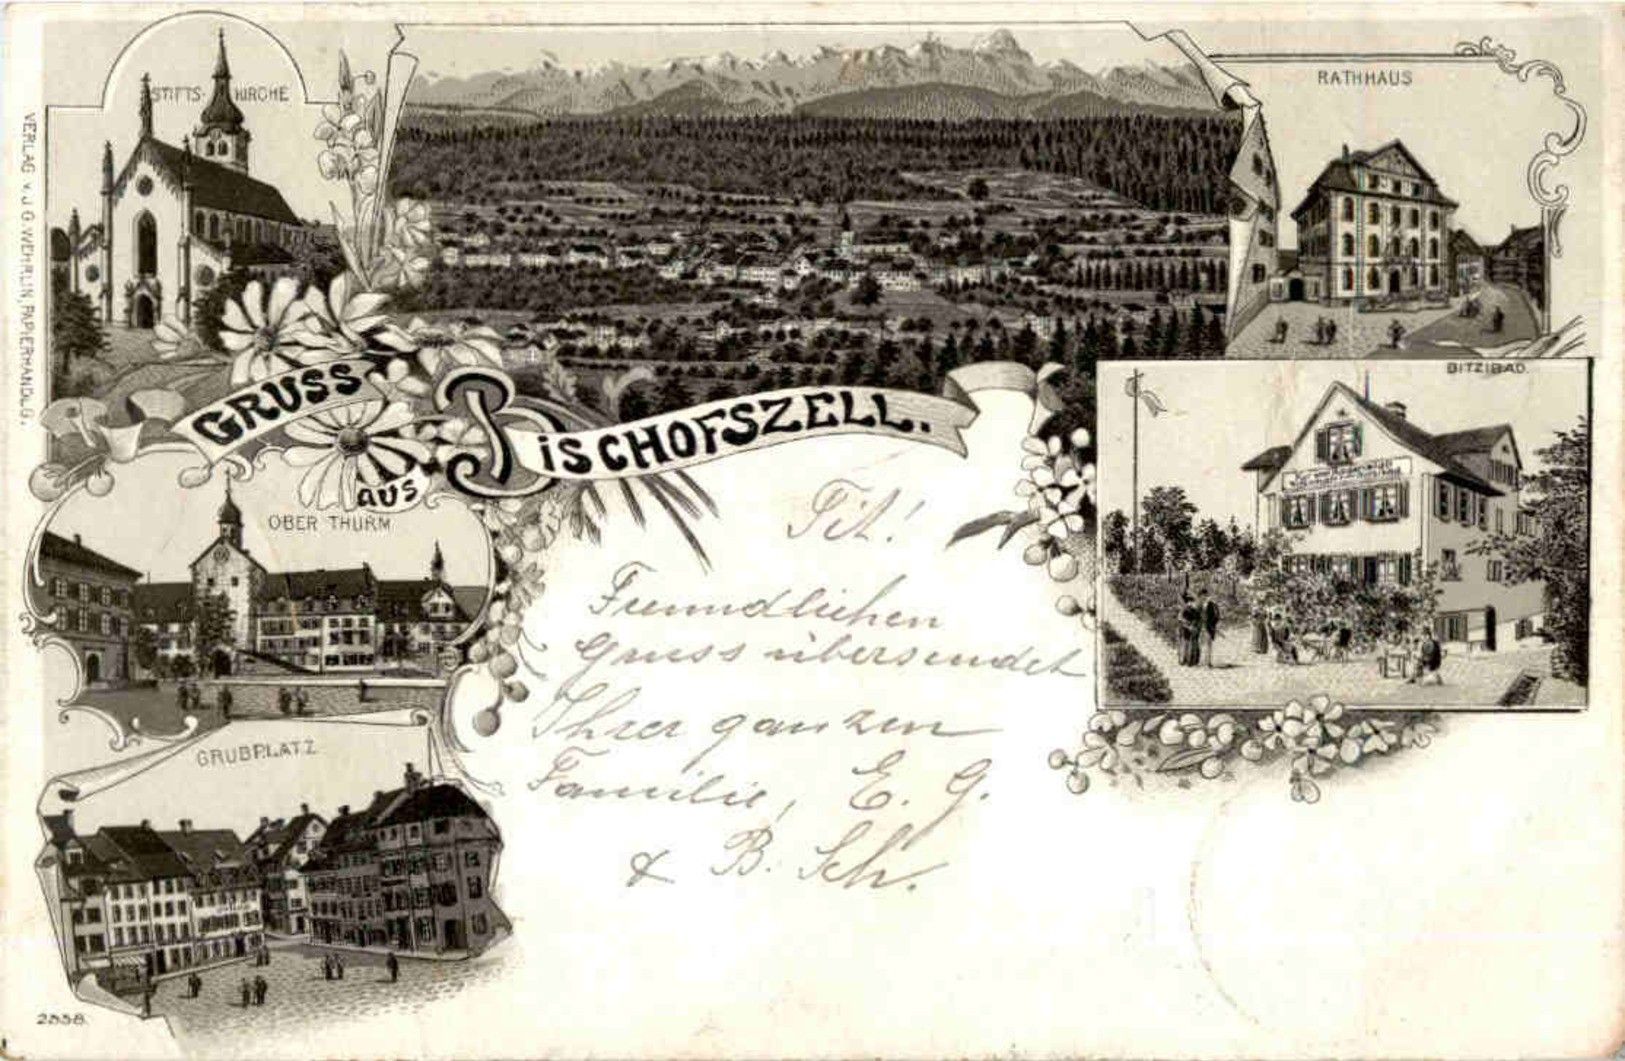 STIFTS-KIRCHE
RATHHAUS
VERLAG v. J. G. WEHRLIN, PAPIERHANDLG.
BITZIBAD.
GRUSS
AUS
BISCHOFSZELL.
OBER THURM
GRUBPLATZ
Tit!
Freundlichen
Gruss übersendet
Ihrer ganzen
Familie, E. G.
& B. Sch.
2558.